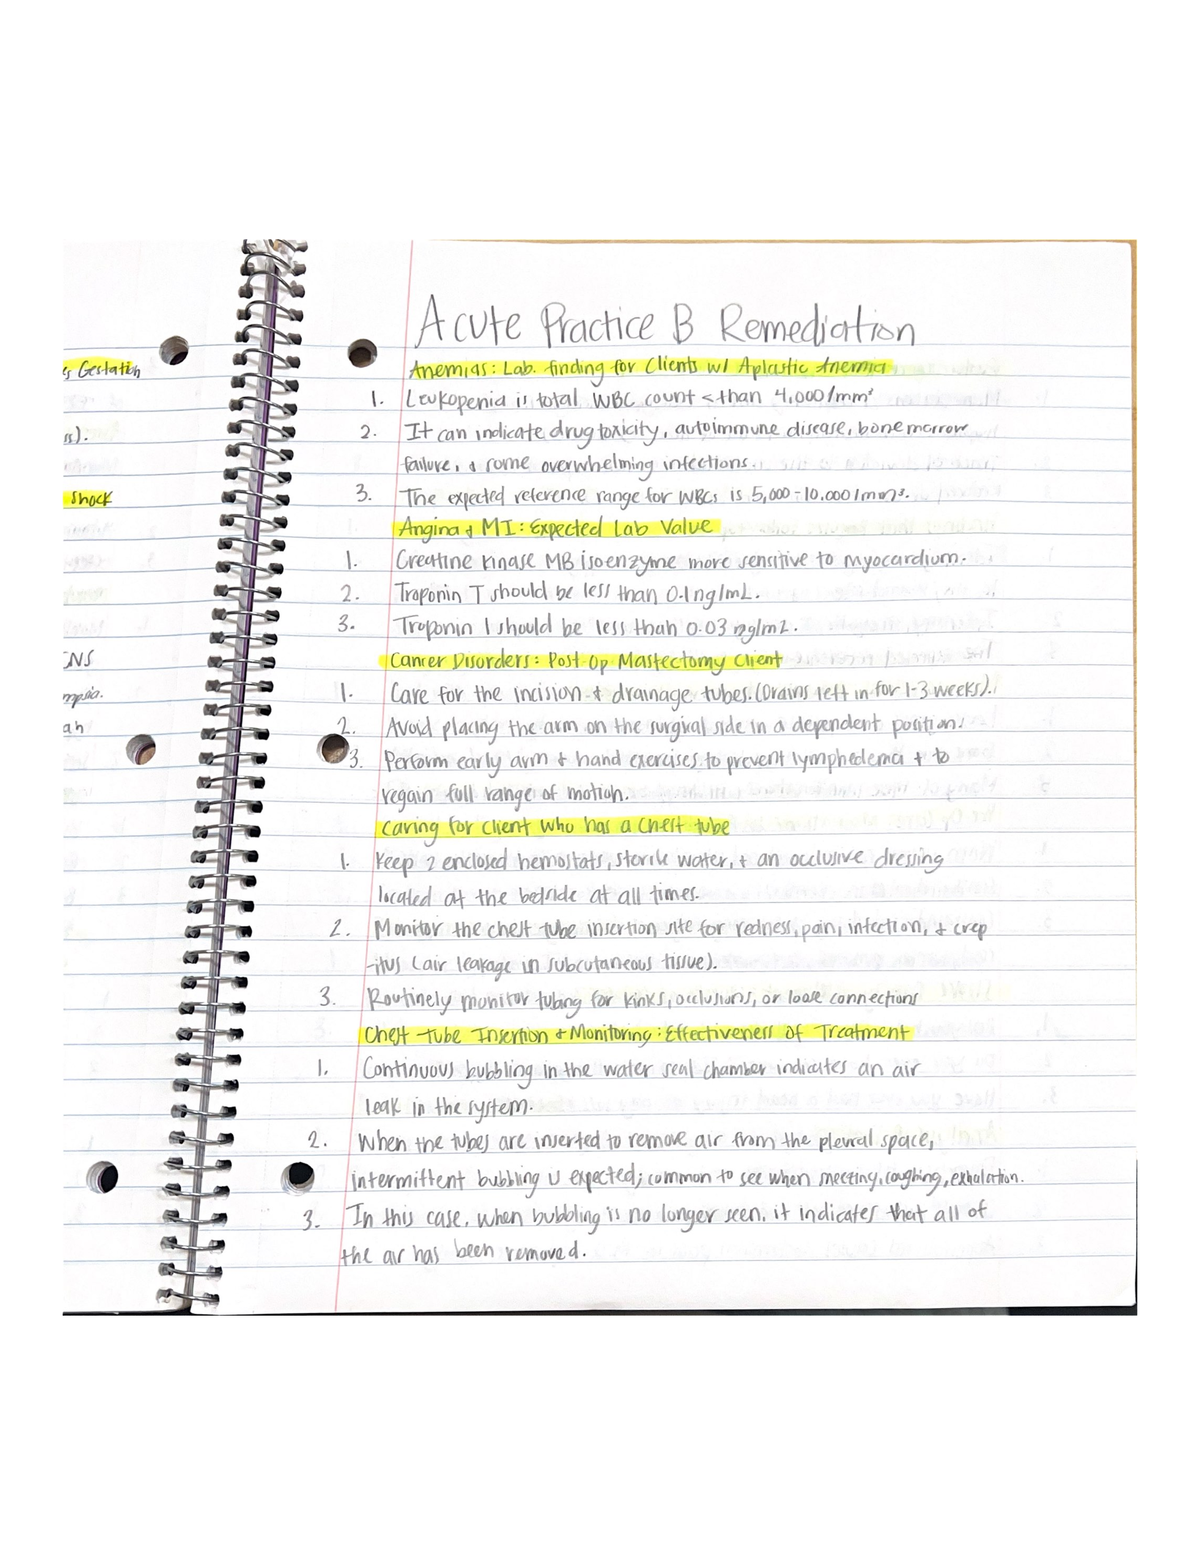 Gestation
s).
Shock
ENS
mpsia.
ah
Acute Practice B Remediation
Anemias: Lab. finding for Clients w/ Aplastic Anemia
1. Leukopenia is total WBC count < than 4,000/mm³
2. It can indicate drug toxicity, autoimmune disease, bone marrow
failure, & some overwhelming infections.
3. The expected reference range for WBCs is 5,000-10,000/mm³.
Angina & MI: Expected Lab Value
1. Creatine Kinase MB isoenzyme more sensitive to myocardium.
2. Troponin T should be less than 0.1 ng/mL.
3. Troponin I should be less than 0.03 ng/mL.
Cancer Disorders: Post-Op Mastectomy Client
1. Care for the incision & drainage tubes. (Drains left in for 1-3 weeks).
2. Avoid placing the arm on the surgical side in a dependent position.
3. Perform early arm & hand exercises to prevent lymphedema & to
regain full range of motion.
Caring for client who has a Chest tube
1. Keep 2 enclosed hemostats, sterile water, & an occlusive dressing
located at the bedside at all times.
2. Monitor the chest tube insertion site for redness, pain, infection, & crep
-itus (air leakage in subcutaneous tissue).
3. Routinely monitor tubing for kinks, occlusions, or loose connections
Chest Tube Insertion & Monitoring: Effectiveness of Treatment
1. Continuous bubbling in the water seal chamber indicates an air
leak in the system.
2. When the tubes are inserted to remove air from the pleural space,
intermittent bubbling is expected; common to see when sneezing, coughing, exhalation.
3. In this case, when bubbling is no longer seen, it indicates that all of
the air has been removed.